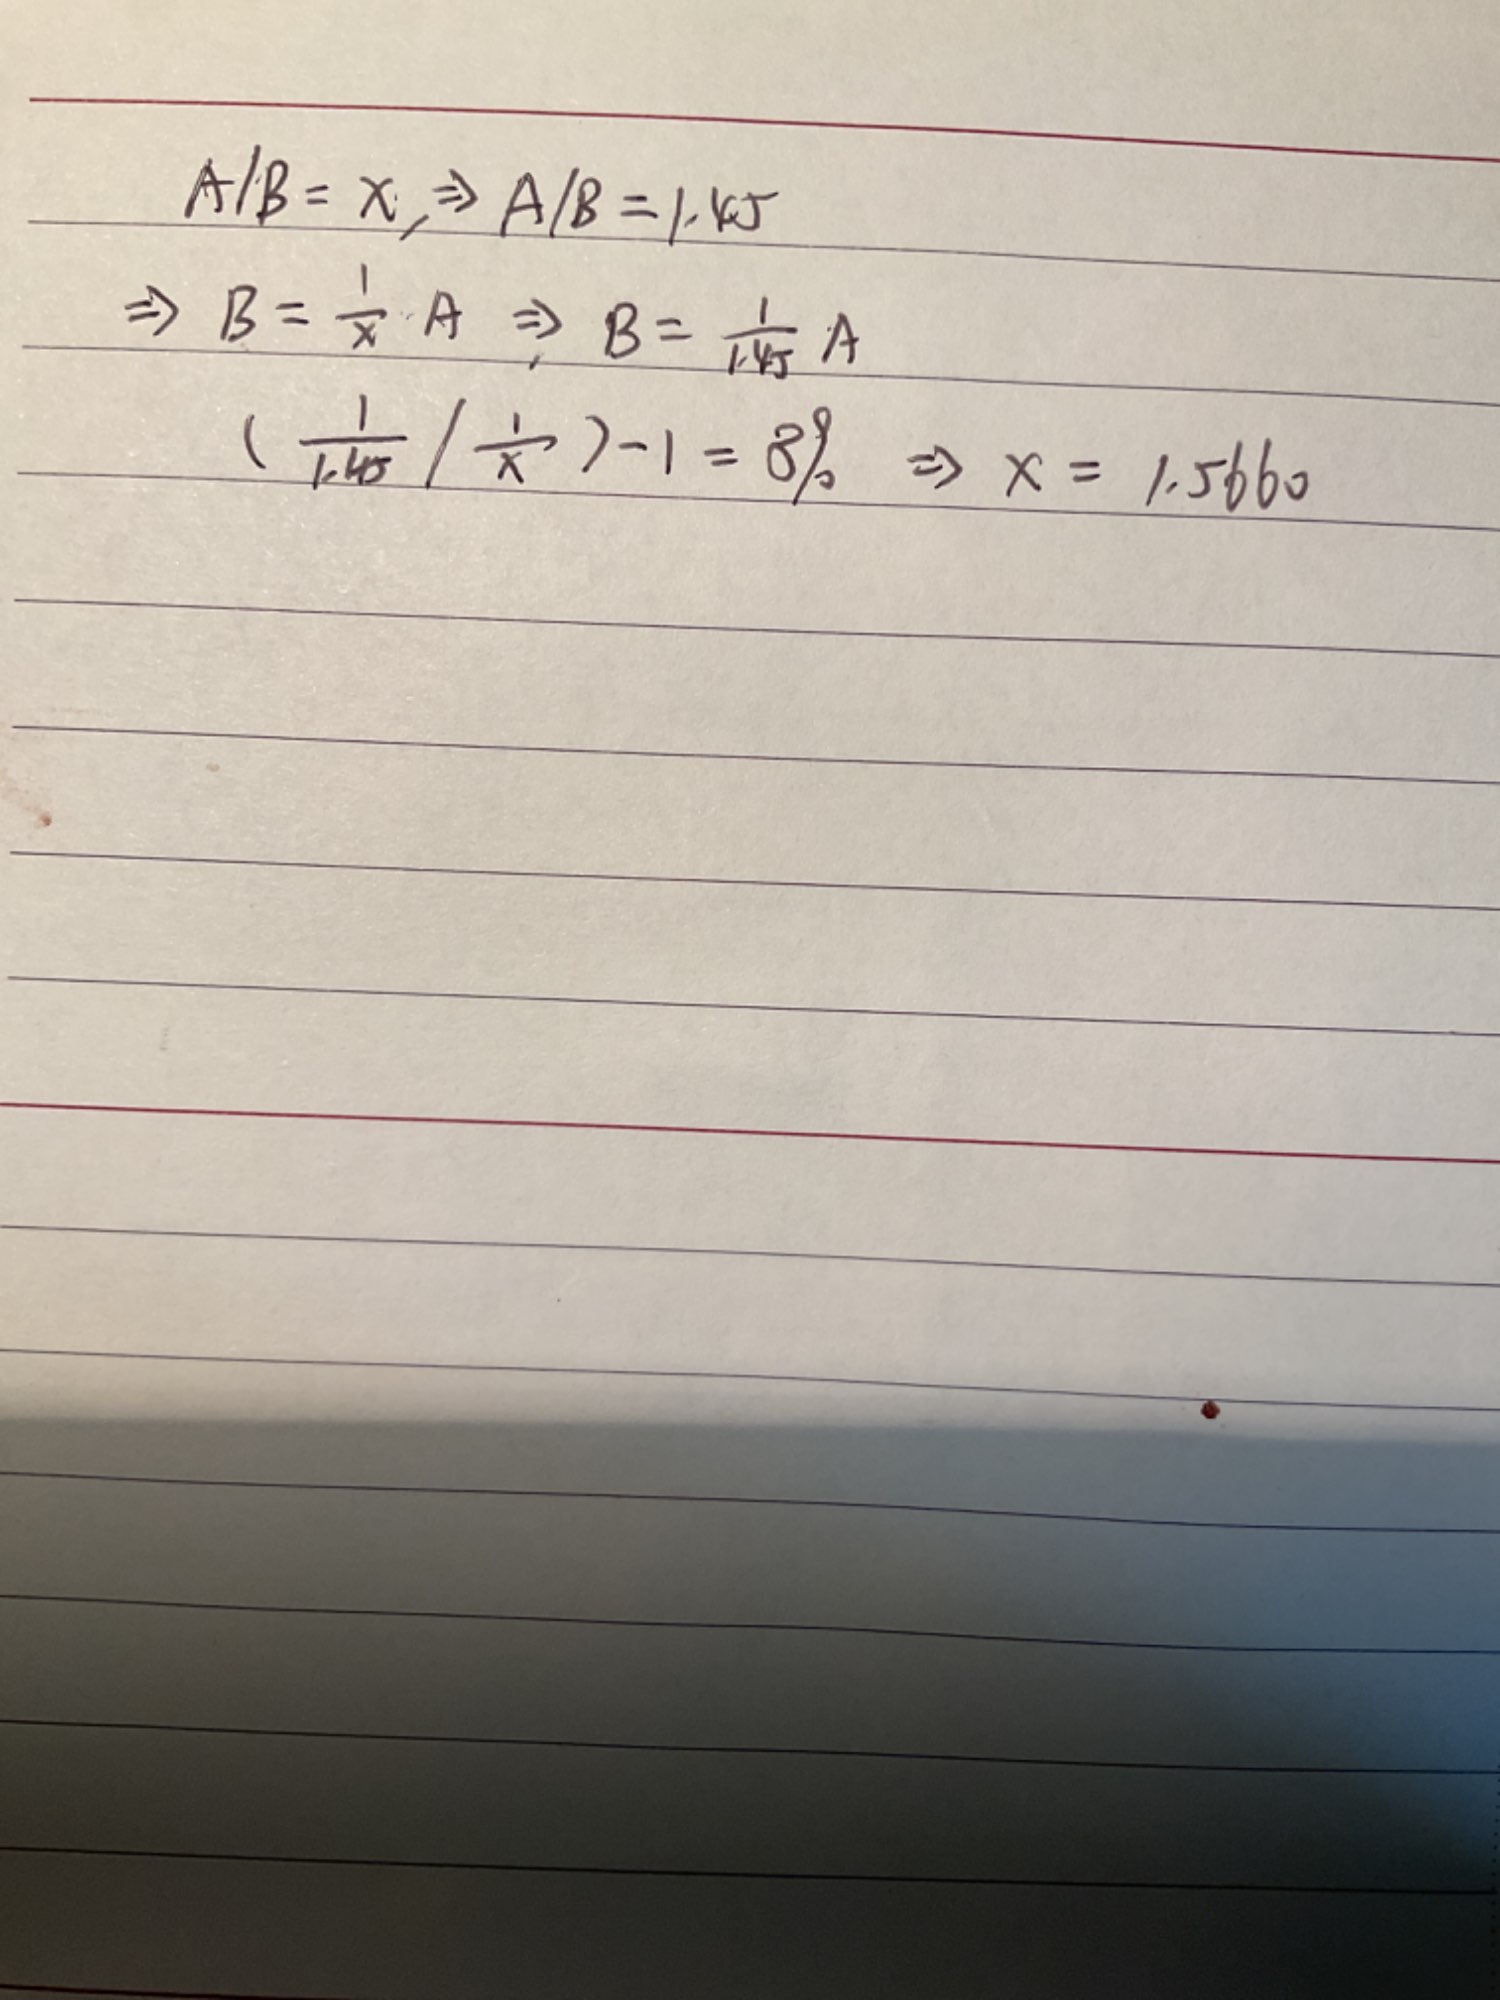 A/B = x, ⇒ A/B = 1.45
⇒ B = 1/x · A ⇒, B = 1/1.45 A
(1/1.45 / 1/x) - 1 = 8% ⇒ x = 1.5660